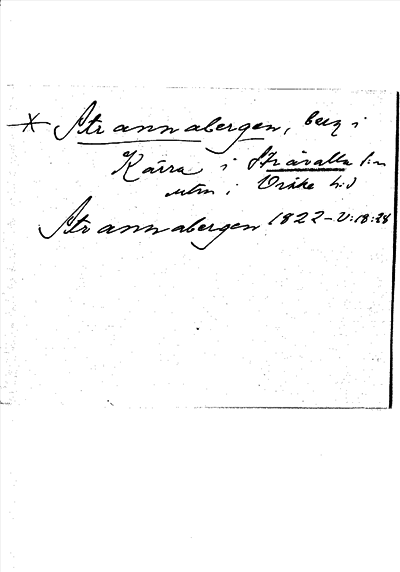 * Strannabergen, berg i
Kärra i Stråvalla s:n
utm i Viske hd
Strannabergen 1822 - V:18:28